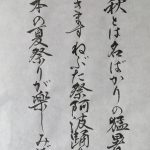 秋とは名ばかりの猛暑
さまねぶた祭阿波踊
本の夏祭りが楽しみ